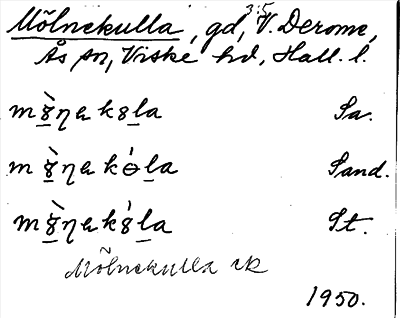 Mölnekulla, gd, 3:5 V. Derome,
Ås sn, Viske hd, Hall. l.
m8̀ηak8la Sa.
m8̀ηakɵ́la Sand.
m8̀ηak8́la St.
Mölnekulla rk
1950.